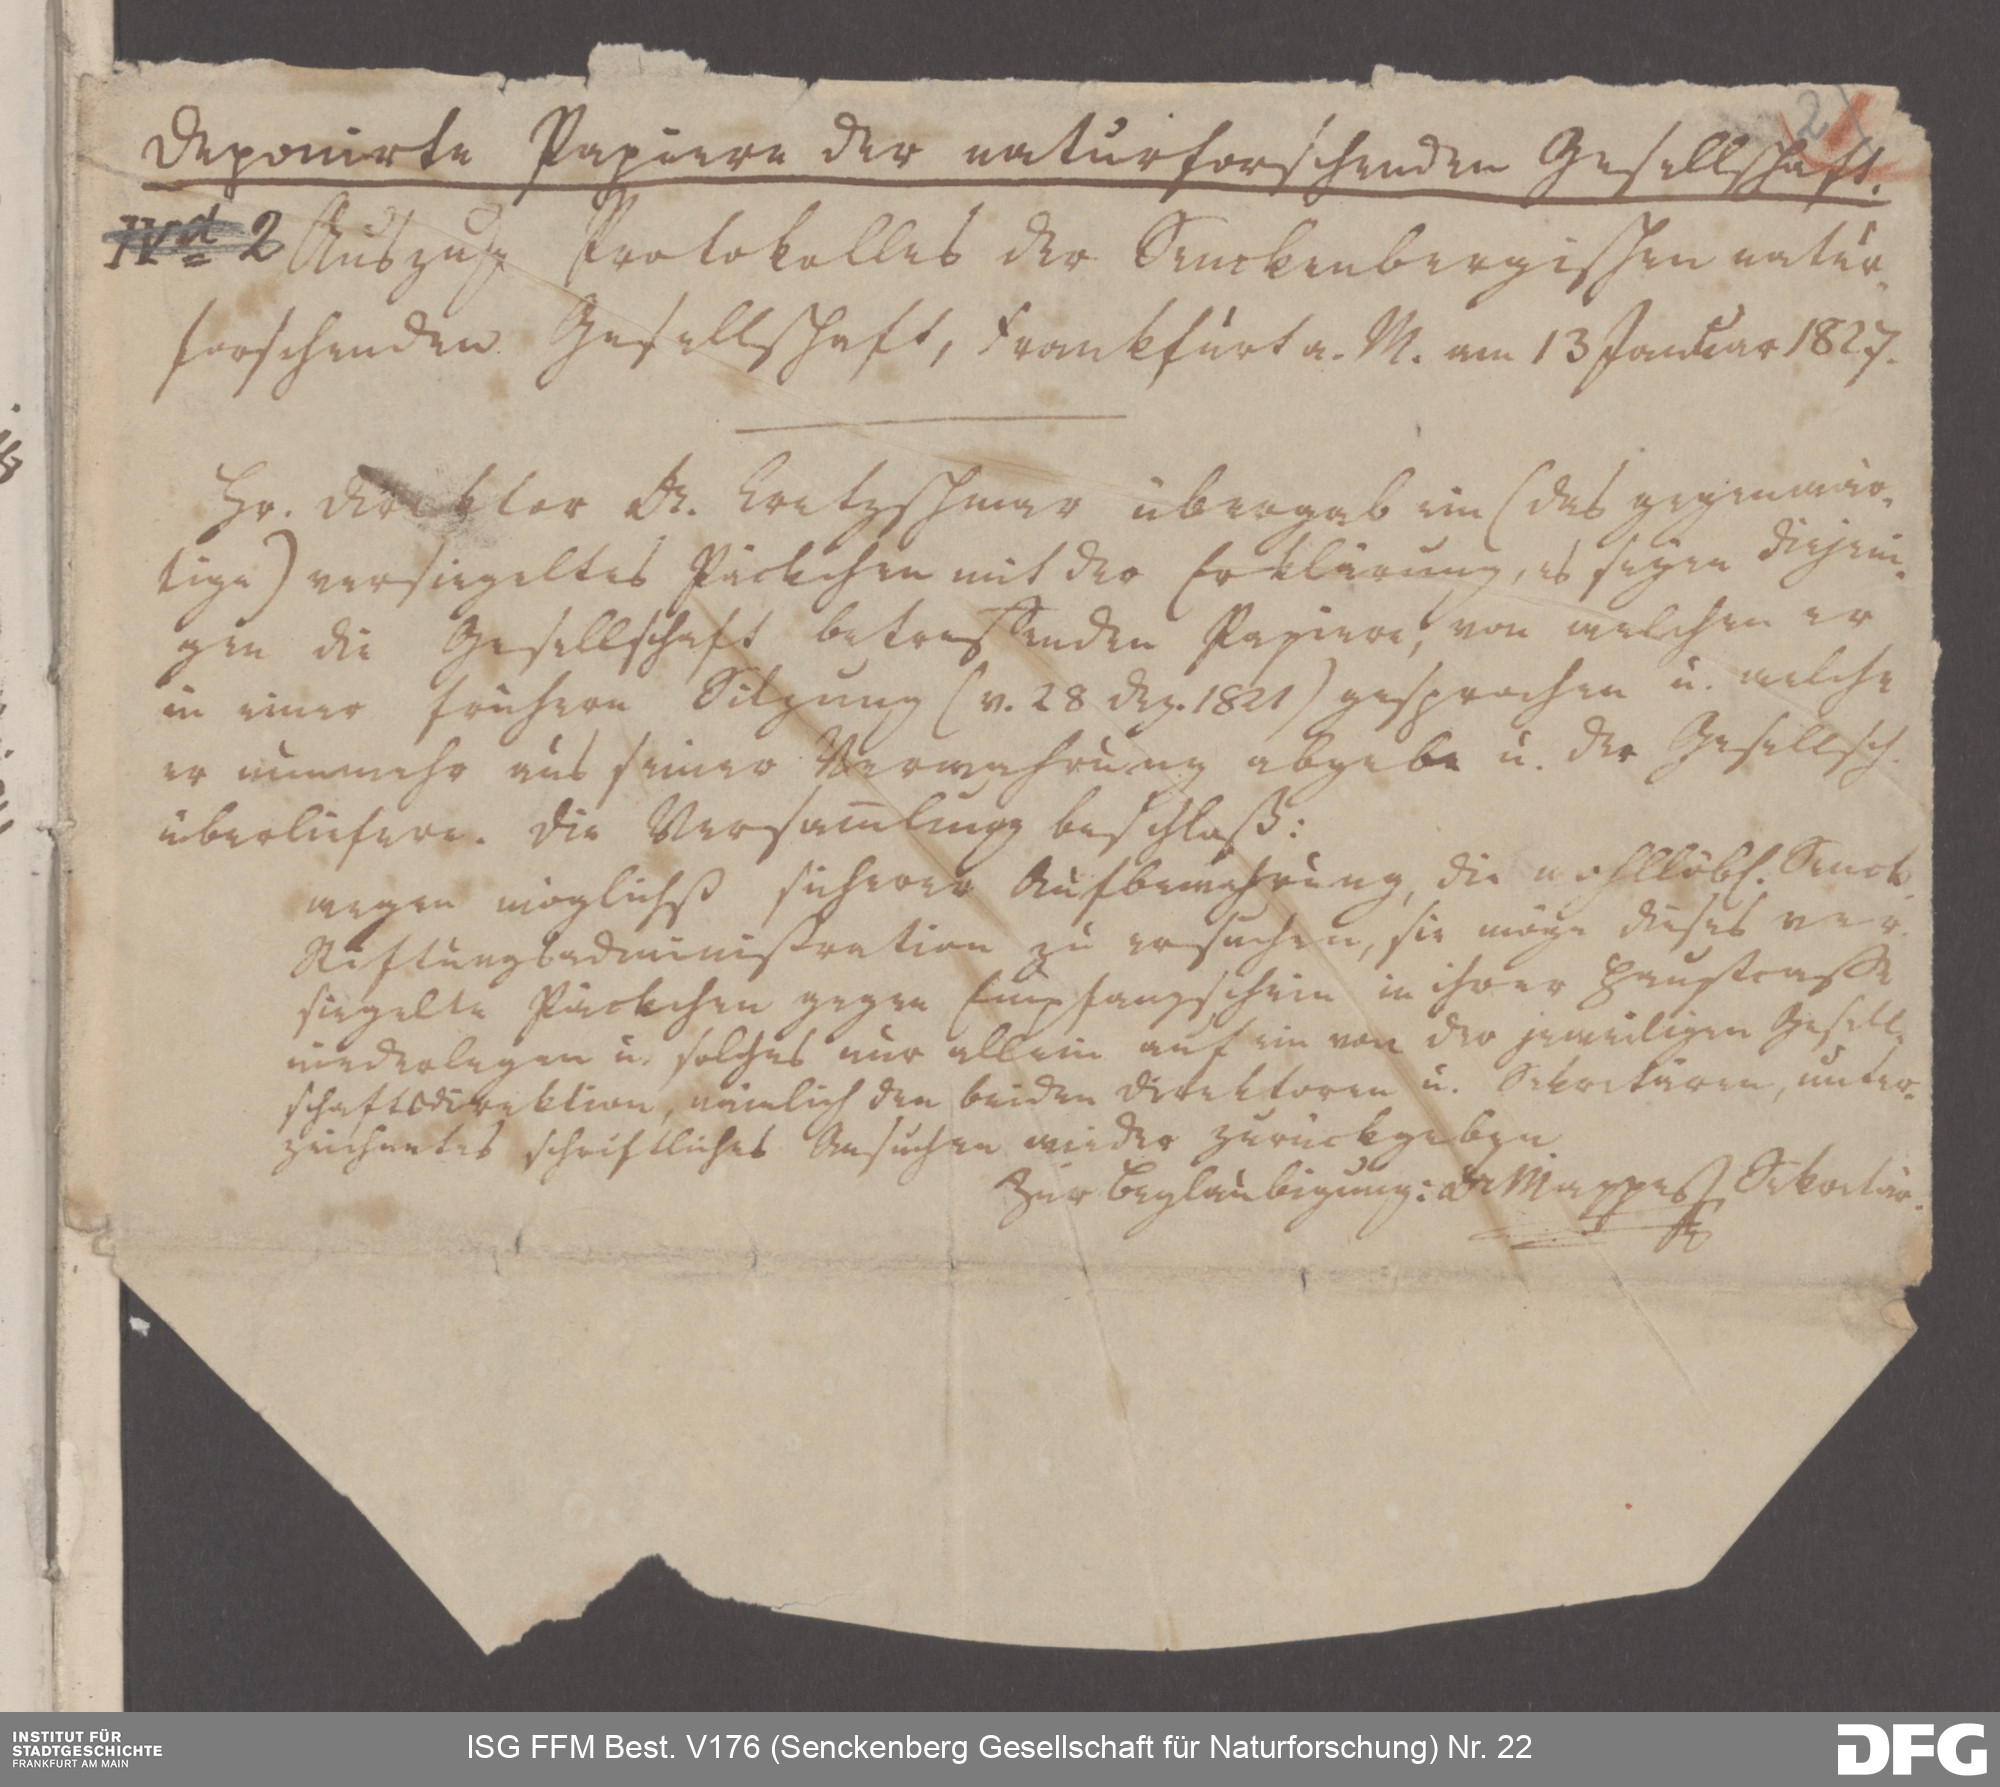 Deponirte Papiere der naturforschenden Gesellschaft.
21
IVd 2 Auszug Protokolles der Senckenbergischen natur-
forschenden Gesellschaft, Frankfurt a. M. am 13 Januar 1827.
Hr. Direktor Dr. Cretzschmar übergab ein (das gegenwär-
tige) versiegeltes Päckchen mit der Erklärung, es seyen diejeni-
gen die Gesellschaft betreffenden Papiere, von welchen er
in einer frühern Sitzung (v. 28 Dez. 1821) gesprochen u. welche
er nunmehr aus seiner Verwahrung abgebe u. der Gesellsch.
überliefere. Die Versam̄lung beschloß:
wegen möglichst sicherer Aufbewahrung, die wohllöbl. Senck.
Stiftungsadministration zu ersuchen, sie möge dieses ver-
siegelte Päckchen gegen Empfangschein in ihrer Hauptcasse
niederlegen u. solches nur allein auf ein von der jeweiligen Gesell-
schaftsdirektion, nämlich den beiden Direktoren u. Sekretären, unter-
zeichnetes schriftliches Ansuchen wieder zurückgeben
Zur Beglaubigung: Dr Mappes, Sekretär.
INSTITUT FÜR
STADTGESCHICHTE
FRANKFURT AM MAIN
ISG FFM Best. V176 (Senckenberg Gesellschaft für Naturforschung) Nr. 22
DFG